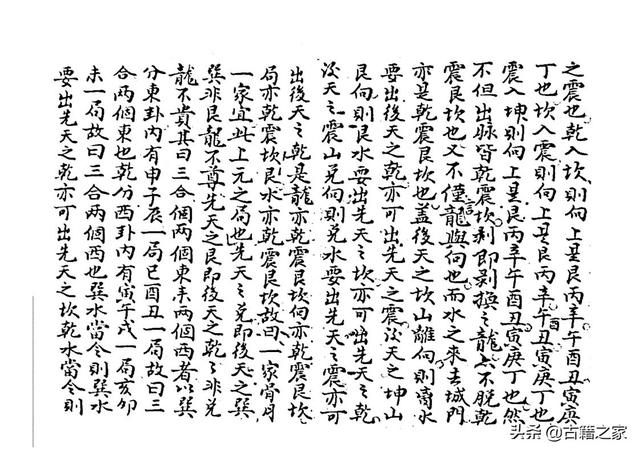 之震也乾入坎則向上是艮丙辛午酉丑寅庚
丁也坎入震則向上是艮丙辛午酉丑寅庚丁也
震入坤則向上是艮丙辛午酉丑寅庚丁也然
不但出脉皆乾震坎剥即剥換之龍亦不脱乾
震艮坎也又不僅言龍與向也而水之来去城門
亦是乾震艮坎也蓋後天之坎山離向則離水
要出後天之乾亦可出先天之震後天之坤山
艮向則艮水要出先天之坎亦可出先天之乾
後天之震山兌向則兌水要出先天之震亦可
出後天之乾是龍亦乾震艮坎向亦乾震艮坎
局亦乾震坎艮水亦乾震艮坎故曰一家骨月
一家宜此上元之局也先天之兌即後天之巽
巽非艮龍不尊先天之艮即後天之乾乾非兌
龍不貴其曰三合個兩個東来兩個西者以巽
分東卦内有申子辰一局巳酉丑一局故曰三
合兩個東也乾分西卦内有寅午戌一局亥卯
未一局故曰三合兩個西也巽水當令則巽水
要出先天之乾亦可出先天之坎乾水當令則
头条@古籍之家